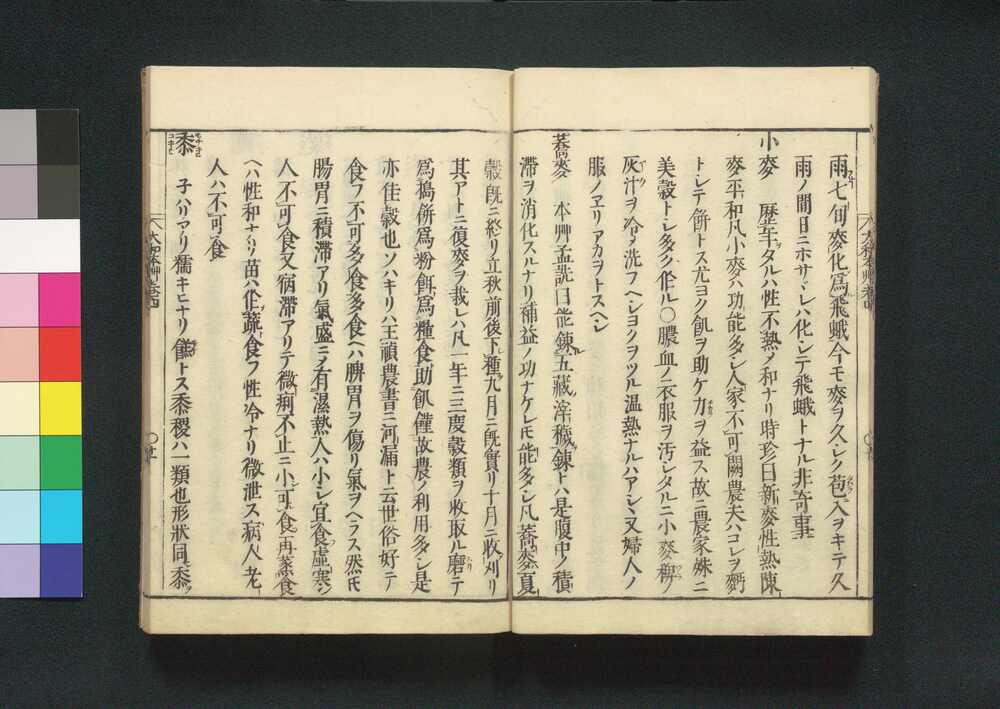 雨七旬麥化爲飛蛾今モ麥ヲ久シク苞ニ入ヲキテ久
雨ノ間日ニホサヾレハ化シテ飛蛾トナル非奇事
小麥 歴年タルハ性不熱ノ和ナリ時珍曰新麥性熱陳
麥平和凡小麥ハ功能多シ人家不可闕農夫ハコレヲ麪
トシテ餅トス尤ヨク飢ヲ助ケ力ヲ益ス故ニ農家殊ニ
美穀トシ多ク作ル〇膿血ノ衣服ヲ汚シタルニ小麥稈ノ
灰汁ヲ冷メ洗フヘシヨクヲツル温熱ナルハアシシ又婦人ノ
服ノヱリアカヲトスヘシ
蕎麥 本艸孟詵曰能錬五藏滓穢錬トハ是腹中ノ積
滯ヲ消化スルナリ補益ノ功ナケレ𪜈能多シ凡蕎麥夏
穀既ニ終リ立秋前後下種九月ニ既實リ十月ニ收刈リ
其アトニ復麥ヲ栽レハ凡一年ニ三度穀類ヲ收取ル磨テ
爲搗餅爲粉餌爲糧食助飢饉故農ノ利用多シ是
亦佳穀也ソハキリハ王禎農書ニ河漏ト云世俗好テ
食フ不可多食多食ヘハ脾胃ヲ傷リ氣ヲヘラス然𪜈
腸胃ニ積滯アリ氣盛ニメ有濕熱人ハ小シ宜食虚寒ノ
人不可食又病滯アリテ微痢不止ニ小可食再蒸食
ヘハ性和ナリ苗ハ作蔬食フ性冷ナリ微泄ス病人老
人ハ不可食
黍 子ハリアリ糯キビナリ餻トス黍稷ハ一類也形狀同黍ハ
大和本艸卷四